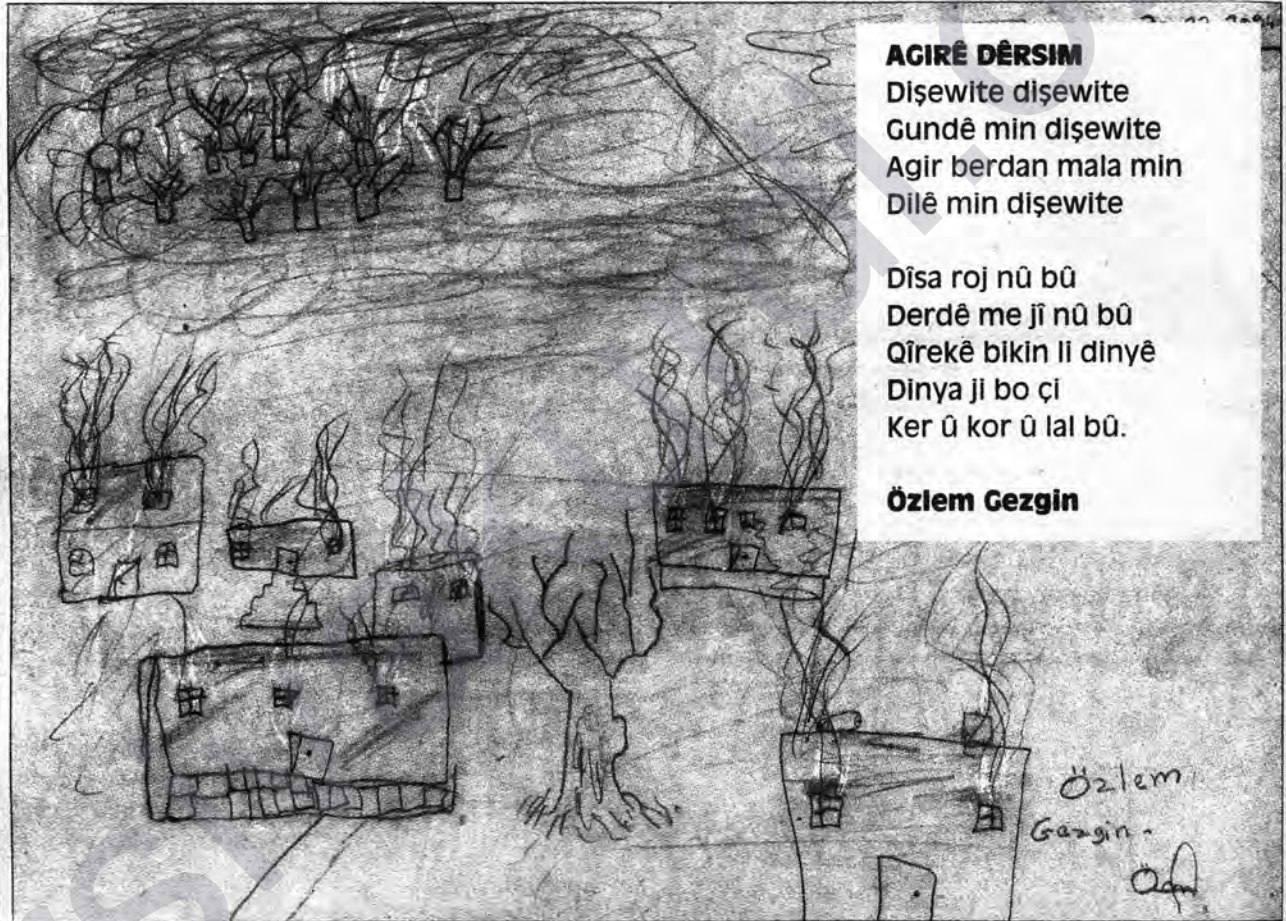 AGIRÊ DÊRSIM
Dişewite dişewite
Gundê min dişewite
Agir berdan mala min
Dilê min dişewite

Dîsa roj nû bû
Derdê me jî nû bû
Qîrekê bikin li dinyê
Dinya ji bo çi
Ker û kor û lal bû.

Özlem Gezgin

Özlem
Gezgin